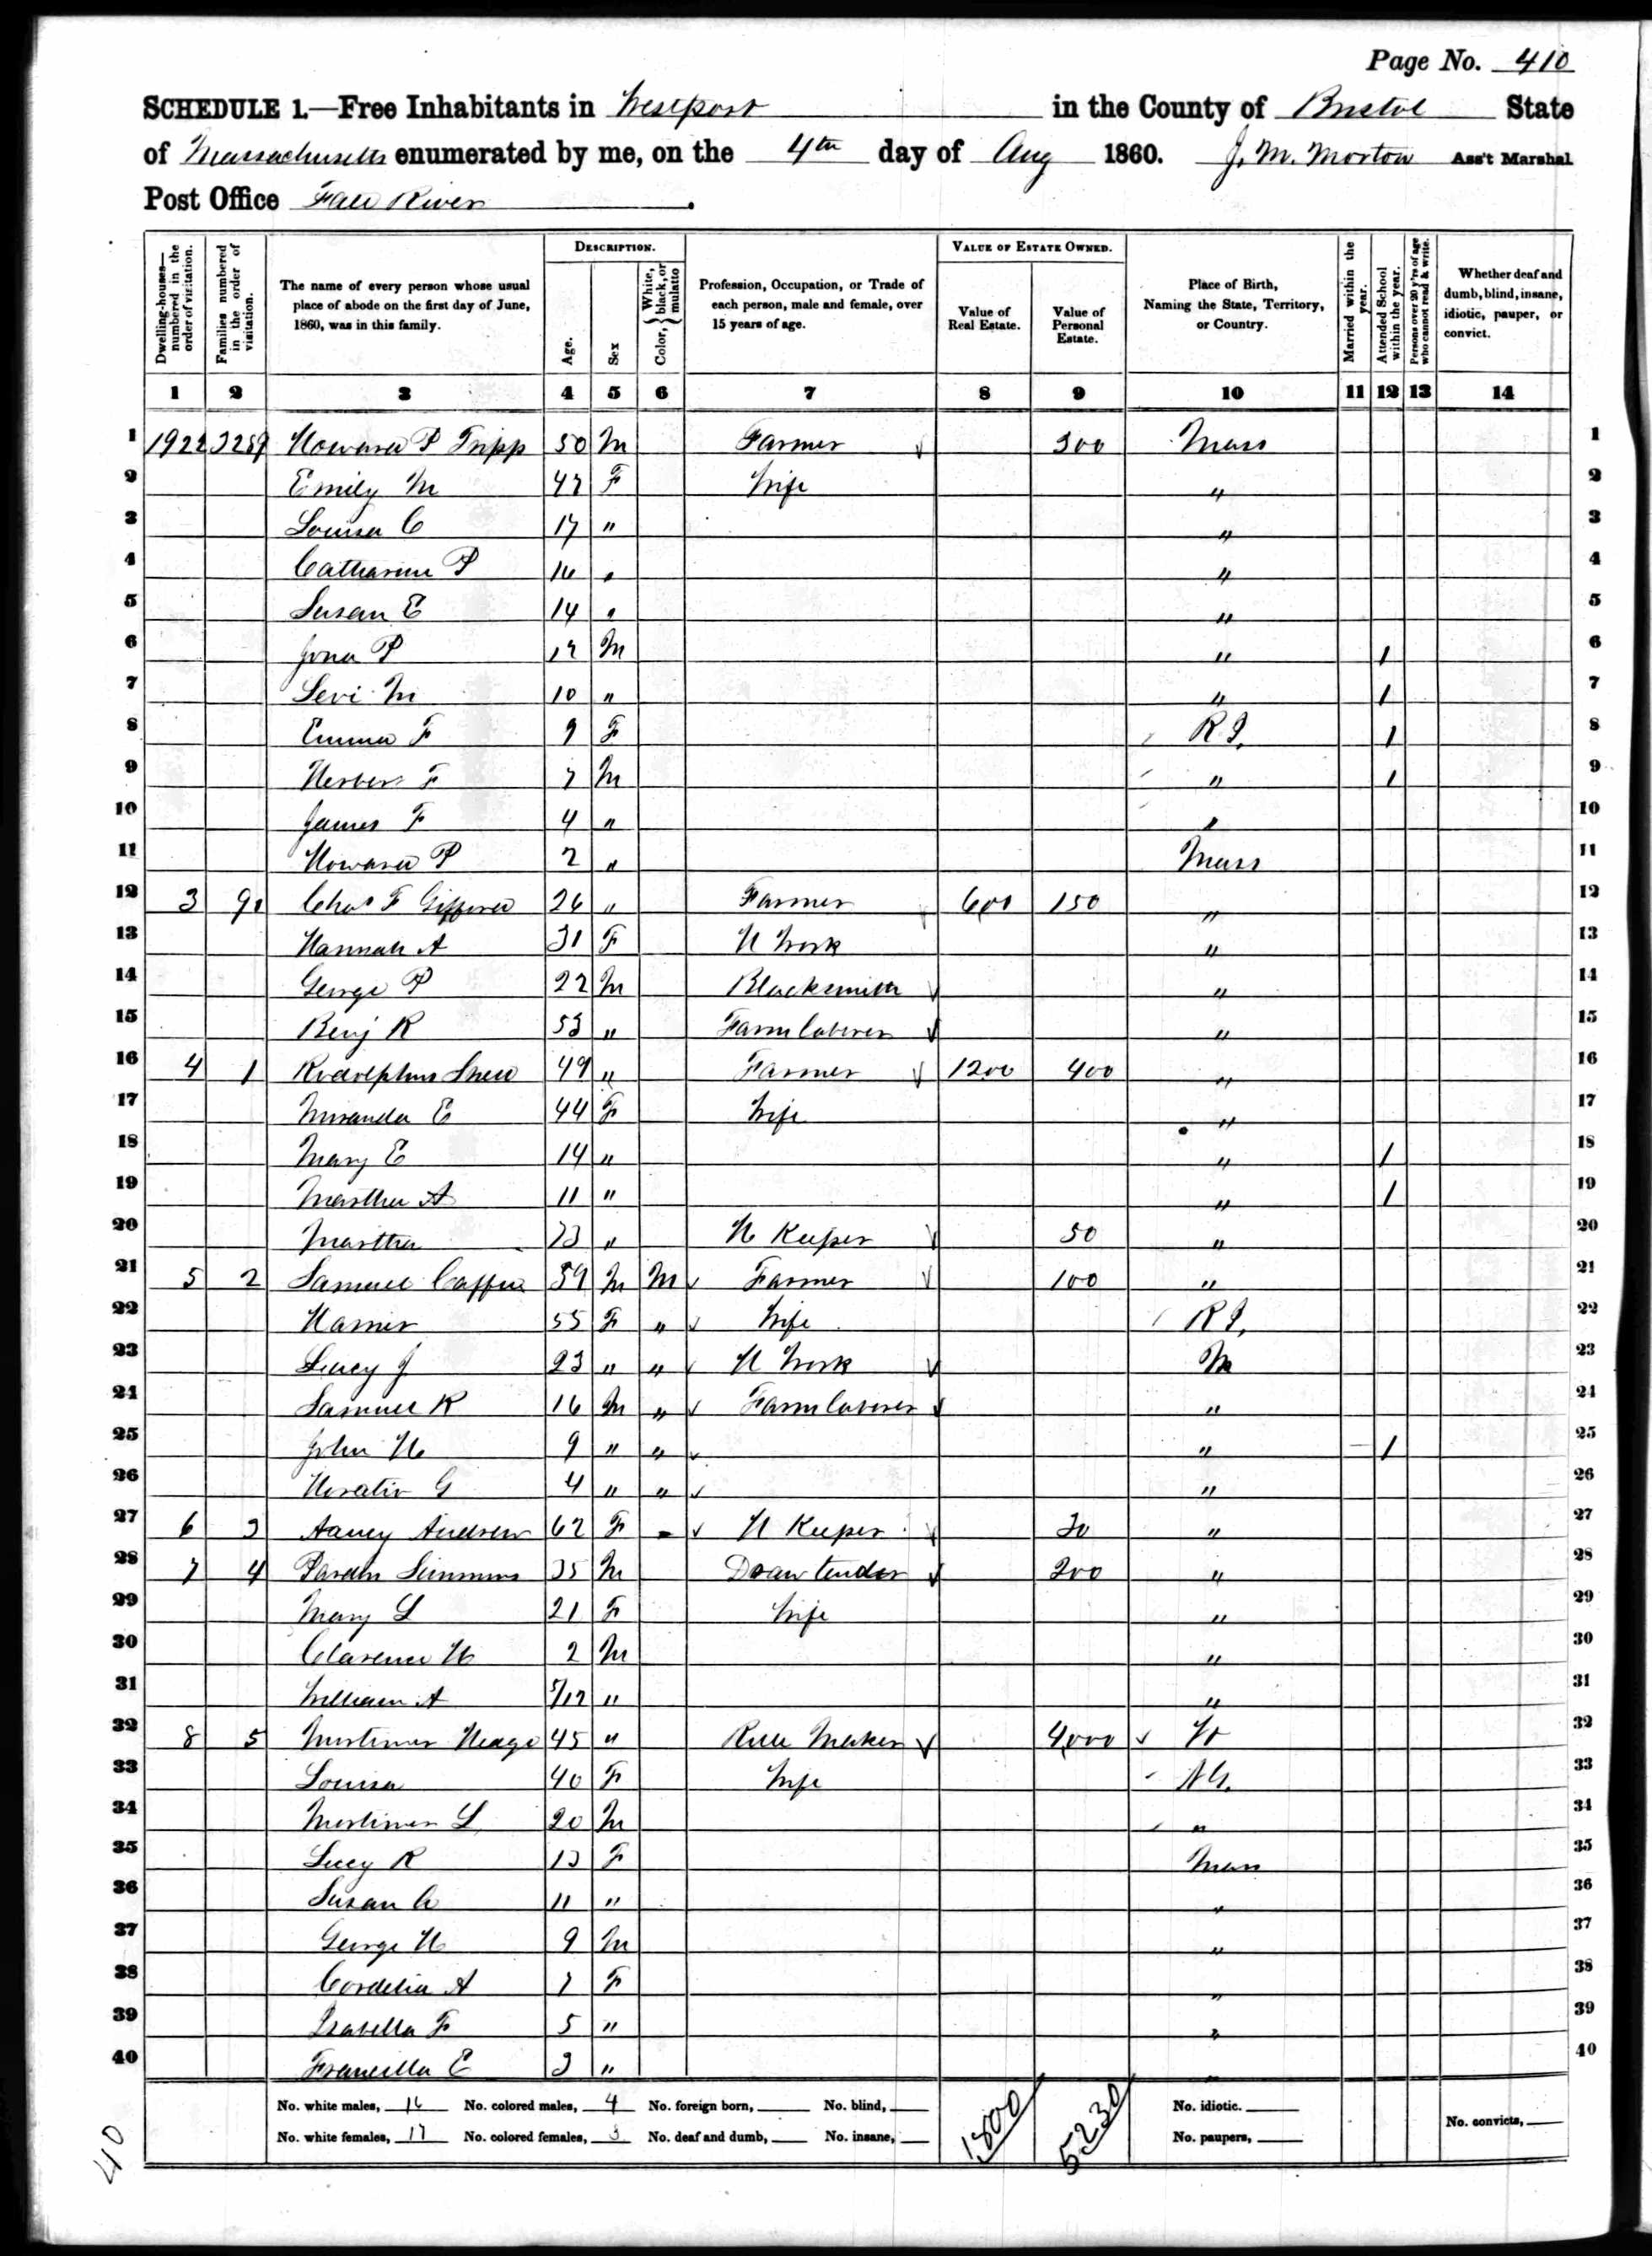 Page No. 410
SCHEDULE 1.—Free Inhabitants in Westport in the County of Bristol State
of Massachusetts enumerated by me, on the 4th day of Aug 1860. J. M. Morton Ass't Marshal
Post Office Fall River.
Dwelling-houses—numbered in the order of visitation.
Families numbered in the order of visitation.
The name of every person whose usual place of abode on the first day of June, 1860, was in this family.
DESCRIPTION.
Age.
Sex
Color, White, black, or mulatto
Profession, Occupation, or Trade of each person, male and female, over 15 years of age.
VALUE OF ESTATE OWNED.
Value of Real Estate.
Value of Personal Estate.
Place of Birth, Naming the State, Territory, or Country.
Married within the year.
Attended School within the year.
Persons over 20 y'rs of age who cannot read & write.
Whether deaf and dumb, blind, insane, idiotic, pauper, or convict.
1 2 3 4 5 6 7 8 9 10 11 12 13 14
1 1922 3289 Howard P Tripp 50 M Farmer 300 Mass 1
2 Emily M 47 F Wife " 2
3 Louisa C 17 " " 3
4 Catharine P 16 " " 4
5 Susan E 14 " " 5
6 Jona P 12 M " 1 6
7 Levi M 10 " " 1 7
8 Emma F 9 F R I, 1 8
9 Herbert F 7 M " 1 9
10 James F 4 " " 10
11 Howard P 2 " Mass 11
12 3 90 Chas F Gifford 26 " Farmer 600 150 " 12
13 Hannah A 31 F H Work " 13
14 George P 22 M Blacksmith " 14
15 Benj R 53 " Farm laborer " 15
16 4 1 Rodolphus Snell 49 " Farmer 1200 400 " 16
17 Miranda E 44 F Wife " 17
18 Mary E 14 " " 1 18
19 Martha A 11 " " 1 19
20 Martha 73 " H Keeper 50 " 20
21 5 2 Samuel Cuffee 59 M M Farmer 100 " 21
22 Harriet 55 F " Wife R I, 22
23 Lucy J 23 " " H Work M 23
24 Samuel R 16 M " Farm laborer " 24
25 John H 9 " " " 1 25
26 Horatio G 4 " " " 26
27 6 3 Nancy Andrew 62 F " H Keeper 30 " 27
28 7 4 Pardon Simmons 35 M Draw tender 200 " 28
29 Mary L 21 F Wife " 29
30 Clarence H 2 M " 30
31 William A 5/12 " " 31
32 8 5 Mortimer Heage 45 " Rule Maker 4000 Vt 32
33 Louisa 40 F Wife 33
34 Mortimer L 20 M " 34
35 Lucy R 13 F Mass 35
36 Susan C 11 " " 36
37 George H 9 M " 37
38 Cordelia A 7 F " 38
39 Isabella F 5 " " 39
40 Francilla E 3 " " 40
No. white males, 16 No. colored males, 4 No. foreign born, No. blind, 1800 5230 No. idiotic. No. convicts,
No. white females, 17 No. colored females, 3 No. deaf and dumb, No. insane, No. paupers,
410